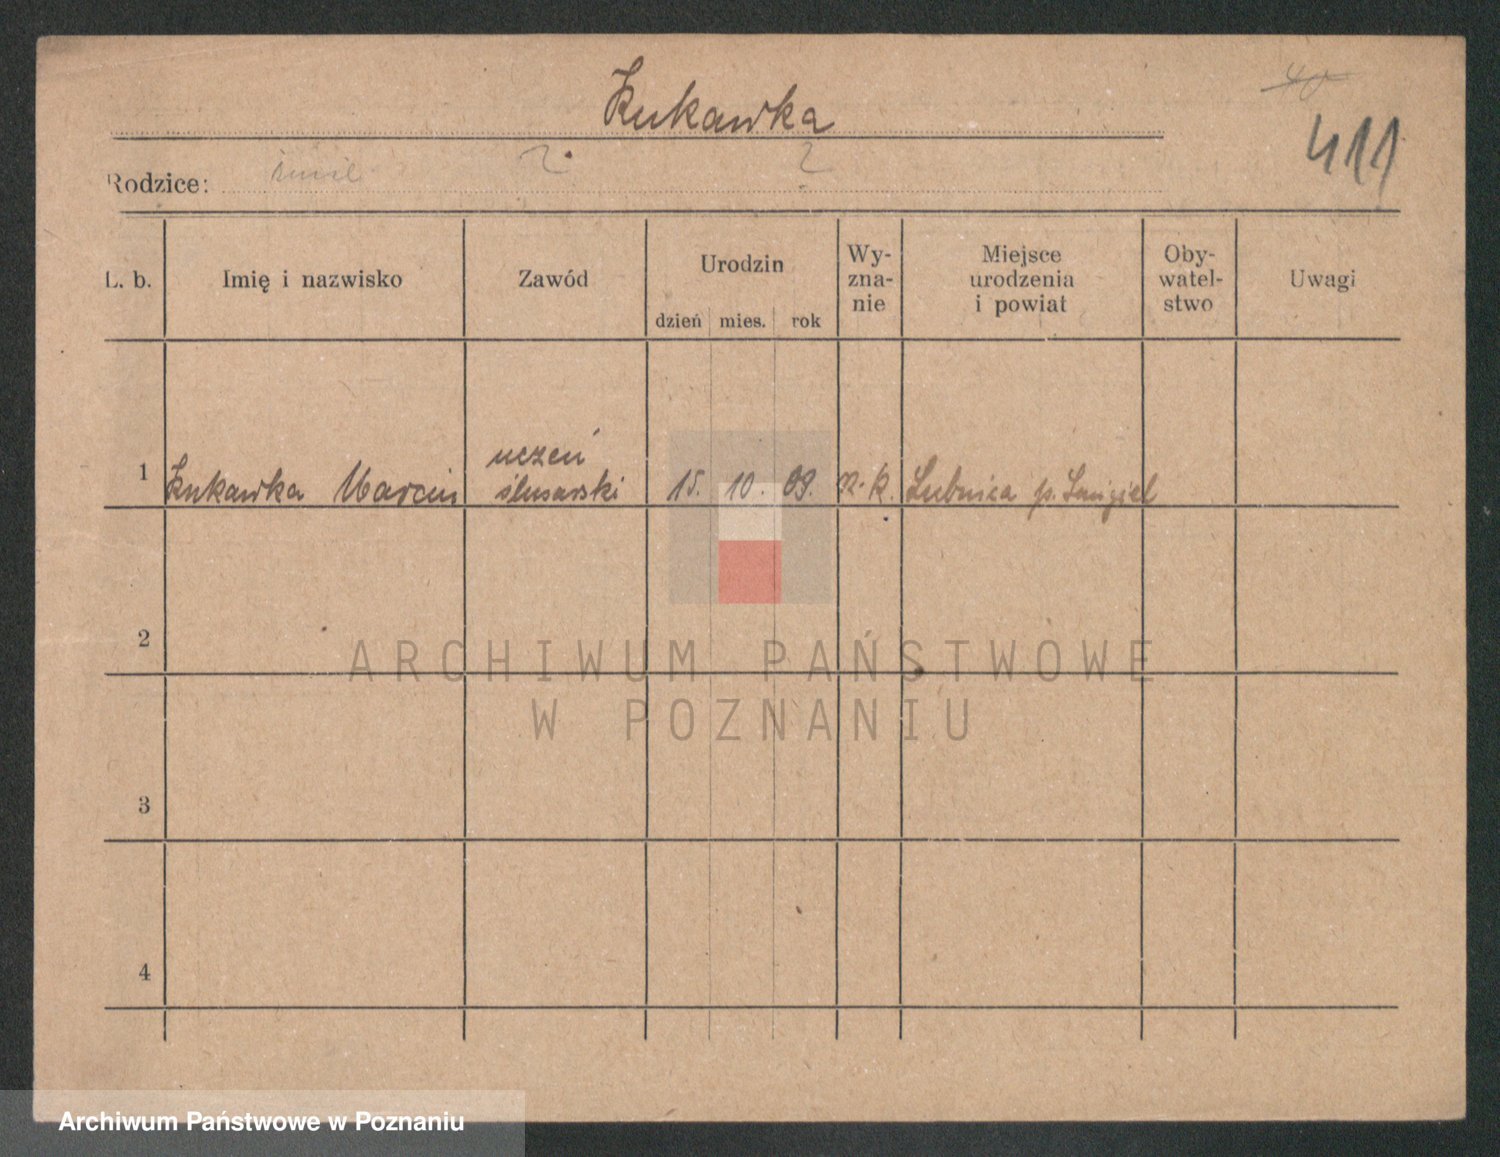 Kukawka
40
411
Rodzice: ? ?
L. b. Imię i nazwisko Zawód Urodzin dzień mies. rok Wy-zna-nie Miejsce urodzenia i powiat Oby-watel-stwo Uwagi
1 Kukawka Marcin uczeń ślusarski 15. 10. 09. rz. k. Łubnica p. Śmigiel
2
3
4
ARCHIWUM PAŃSTWOWE
W POZNANIU
Archiwum Państwowe w Poznaniu